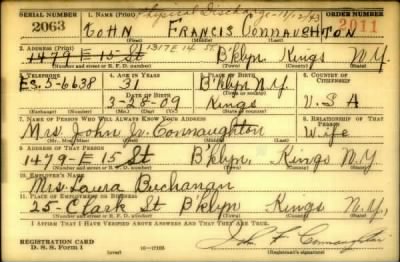 SERIAL NUMBER 1. NAME (Print) Physical Discharge - 11/12/43 ORDER NUMBER
2063 JOHN FRANCIS CONNAUGHTON 2011
2. ADDRESS (Print) 1317 E 14 ST.
1479 E 15 St B'klyn. Kings N.Y.
(Number and street or R. F. D. number) (Town) (County) (State)
3. TELEPHONE 4. AGE IN YEARS 5. PLACE OF BIRTH 6. COUNTRY OF CITIZENSHIP
Es. 5-6638 31 B'klyn N.Y.
DATE OF BIRTH
3-28-09 Kings U S A
(Exchange) (Number) (Mo.) (Day) (Yr.) (State or country)
7. NAME OF PERSON WHO WILL ALWAYS KNOW YOUR ADDRESS 8. RELATIONSHIP OF THAT PERSON
Mrs. John Connaughton Wife
(Mr., Mrs., Miss) (First) (Middle) (Last)
9. ADDRESS OF THAT PERSON
1479 E 15 St B'klyn. Kings N.Y.
(Number and street or R. F. D. number) (Town) (County) (State)
10. EMPLOYER'S NAME
Mrs. Laura Buchanan
11. PLACE OF EMPLOYMENT OR BUSINESS
25- Clark St B'klyn Kings N.Y.
(Number and street or R. F. D. number) (Town) (County) (State)
I AFFIRM THAT I HAVE VERIFIED ABOVE ANSWERS AND THAT THEY ARE TRUE.
REGISTRATION CARD
D. S. S. Form 1 (over) John F Connaughton
(Registrant's signature)